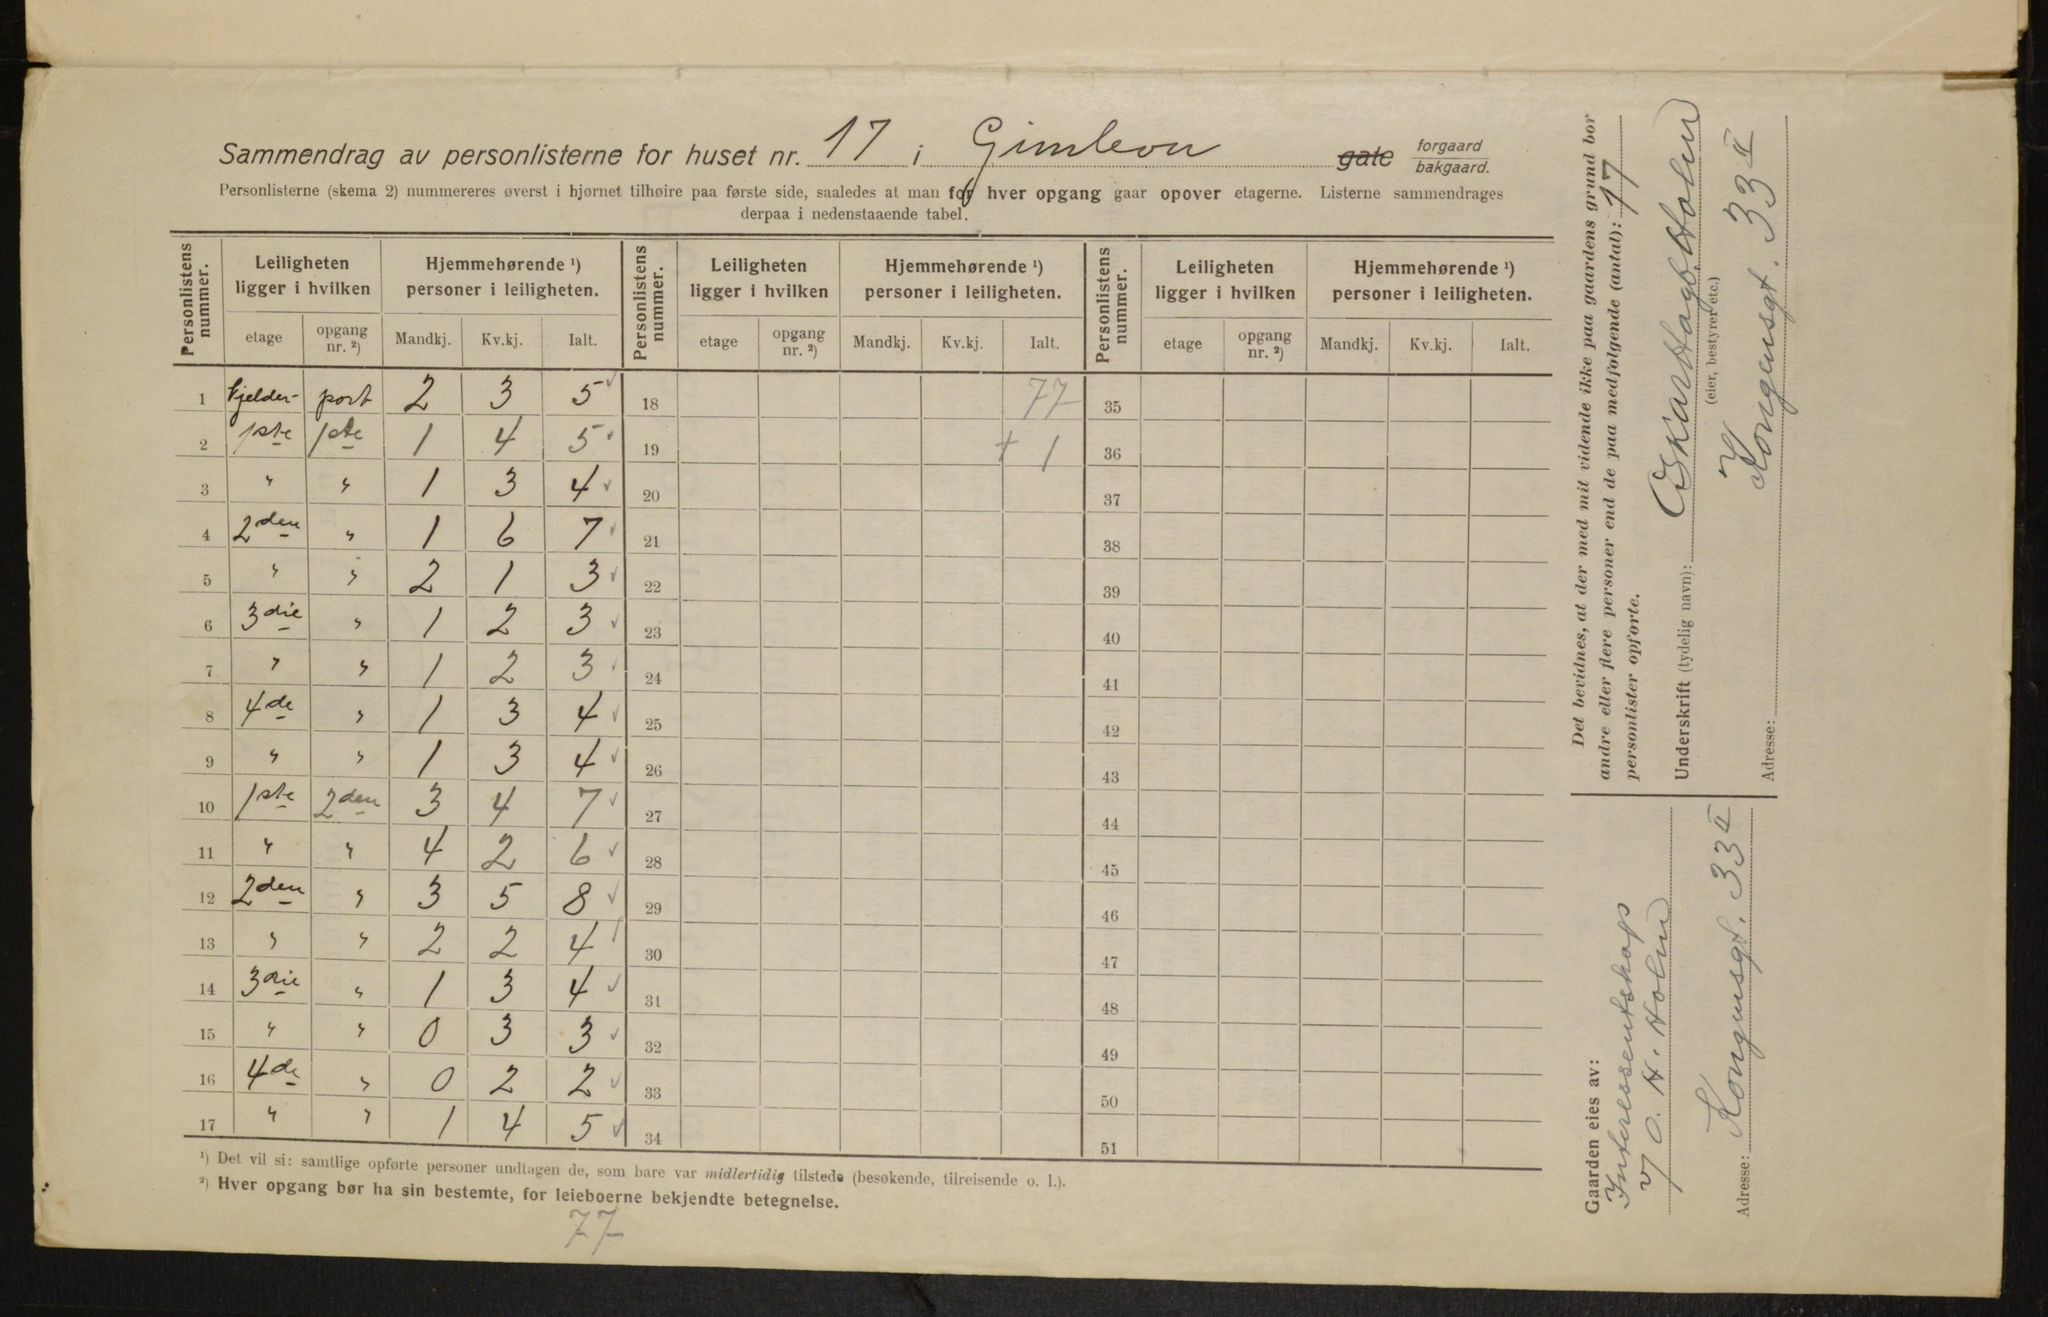 Sammendrag av personlisterne for huset nr. 17 i Gimlevn gate forgaard bakgaard.
Personlisterne (skema 2) nummereres øverst i hjørnet tilhøire paa første side, saaledes at man for hver opgang gaar opover etagerne. Listerne sammendrages
derpaa i nedenstaaende tabel.
Personlistens nummer. Leiligheten ligger i hvilken Hjemmehørende ¹) personer i leiligheten. Personlistens nummer. Leiligheten ligger i hvilken Hjemmehørende ¹) personer i leiligheten. Personlistens nummer. Leiligheten ligger i hvilken Hjemmehørende ¹) personer i leiligheten.
etage opgang nr. ²) Mandkj. Kv.kj. Ialt. etage opgang nr. ²) Mandkj. Kv.kj. Ialt. etage opgang nr. ²) Mandkj. Kv.kj. Ialt.
1 kjelder- port 2 3 5 18 77 35
2 1ste 1ste 1 4 5 19 + 1 36
3 " " 1 3 4 20 37
4 2den " 1 6 7 21 38
5 " " 2 1 3 22 39
6 3die " 1 2 3 23 40
7 " " 1 2 3 24 41
8 4de " 1 3 4 25 42
9 " " 1 3 4 26 43
10 1ste 2den 3 4 7 27 44
11 " " 4 2 6 28 45
12 2den " 3 5 8 29 46
13 " " 2 2 4 30 47
14 3die " 1 3 4 31 48
15 " " 0 3 3 32 49
16 4de " 0 2 2 33 50
17 " " 1 4 5 34 51
¹) Det vil si: samtlige opførte personer undtagen de, som bare var midlertidig tilstede (besøkende, tilreisende o. l.).
²) Hver opgang bør ha sin bestemte, for leieboerne bekjendte betegnelse.
77
Det bevidnes, at der med mit vidende ikke paa gaardens grund bor
andre eller flere personer end de paa medfølgende (antal): 17
personlister opførte.
Underskrift (tydelig navn): Oskar Hagb. Holm
(eier, bestyrer etc.)
Adresse: Kongensgt. 33 II
Gaarden eies av:
Interessentskap
v/ O. H. Holm
Adresse: Kongensgt. 33 II